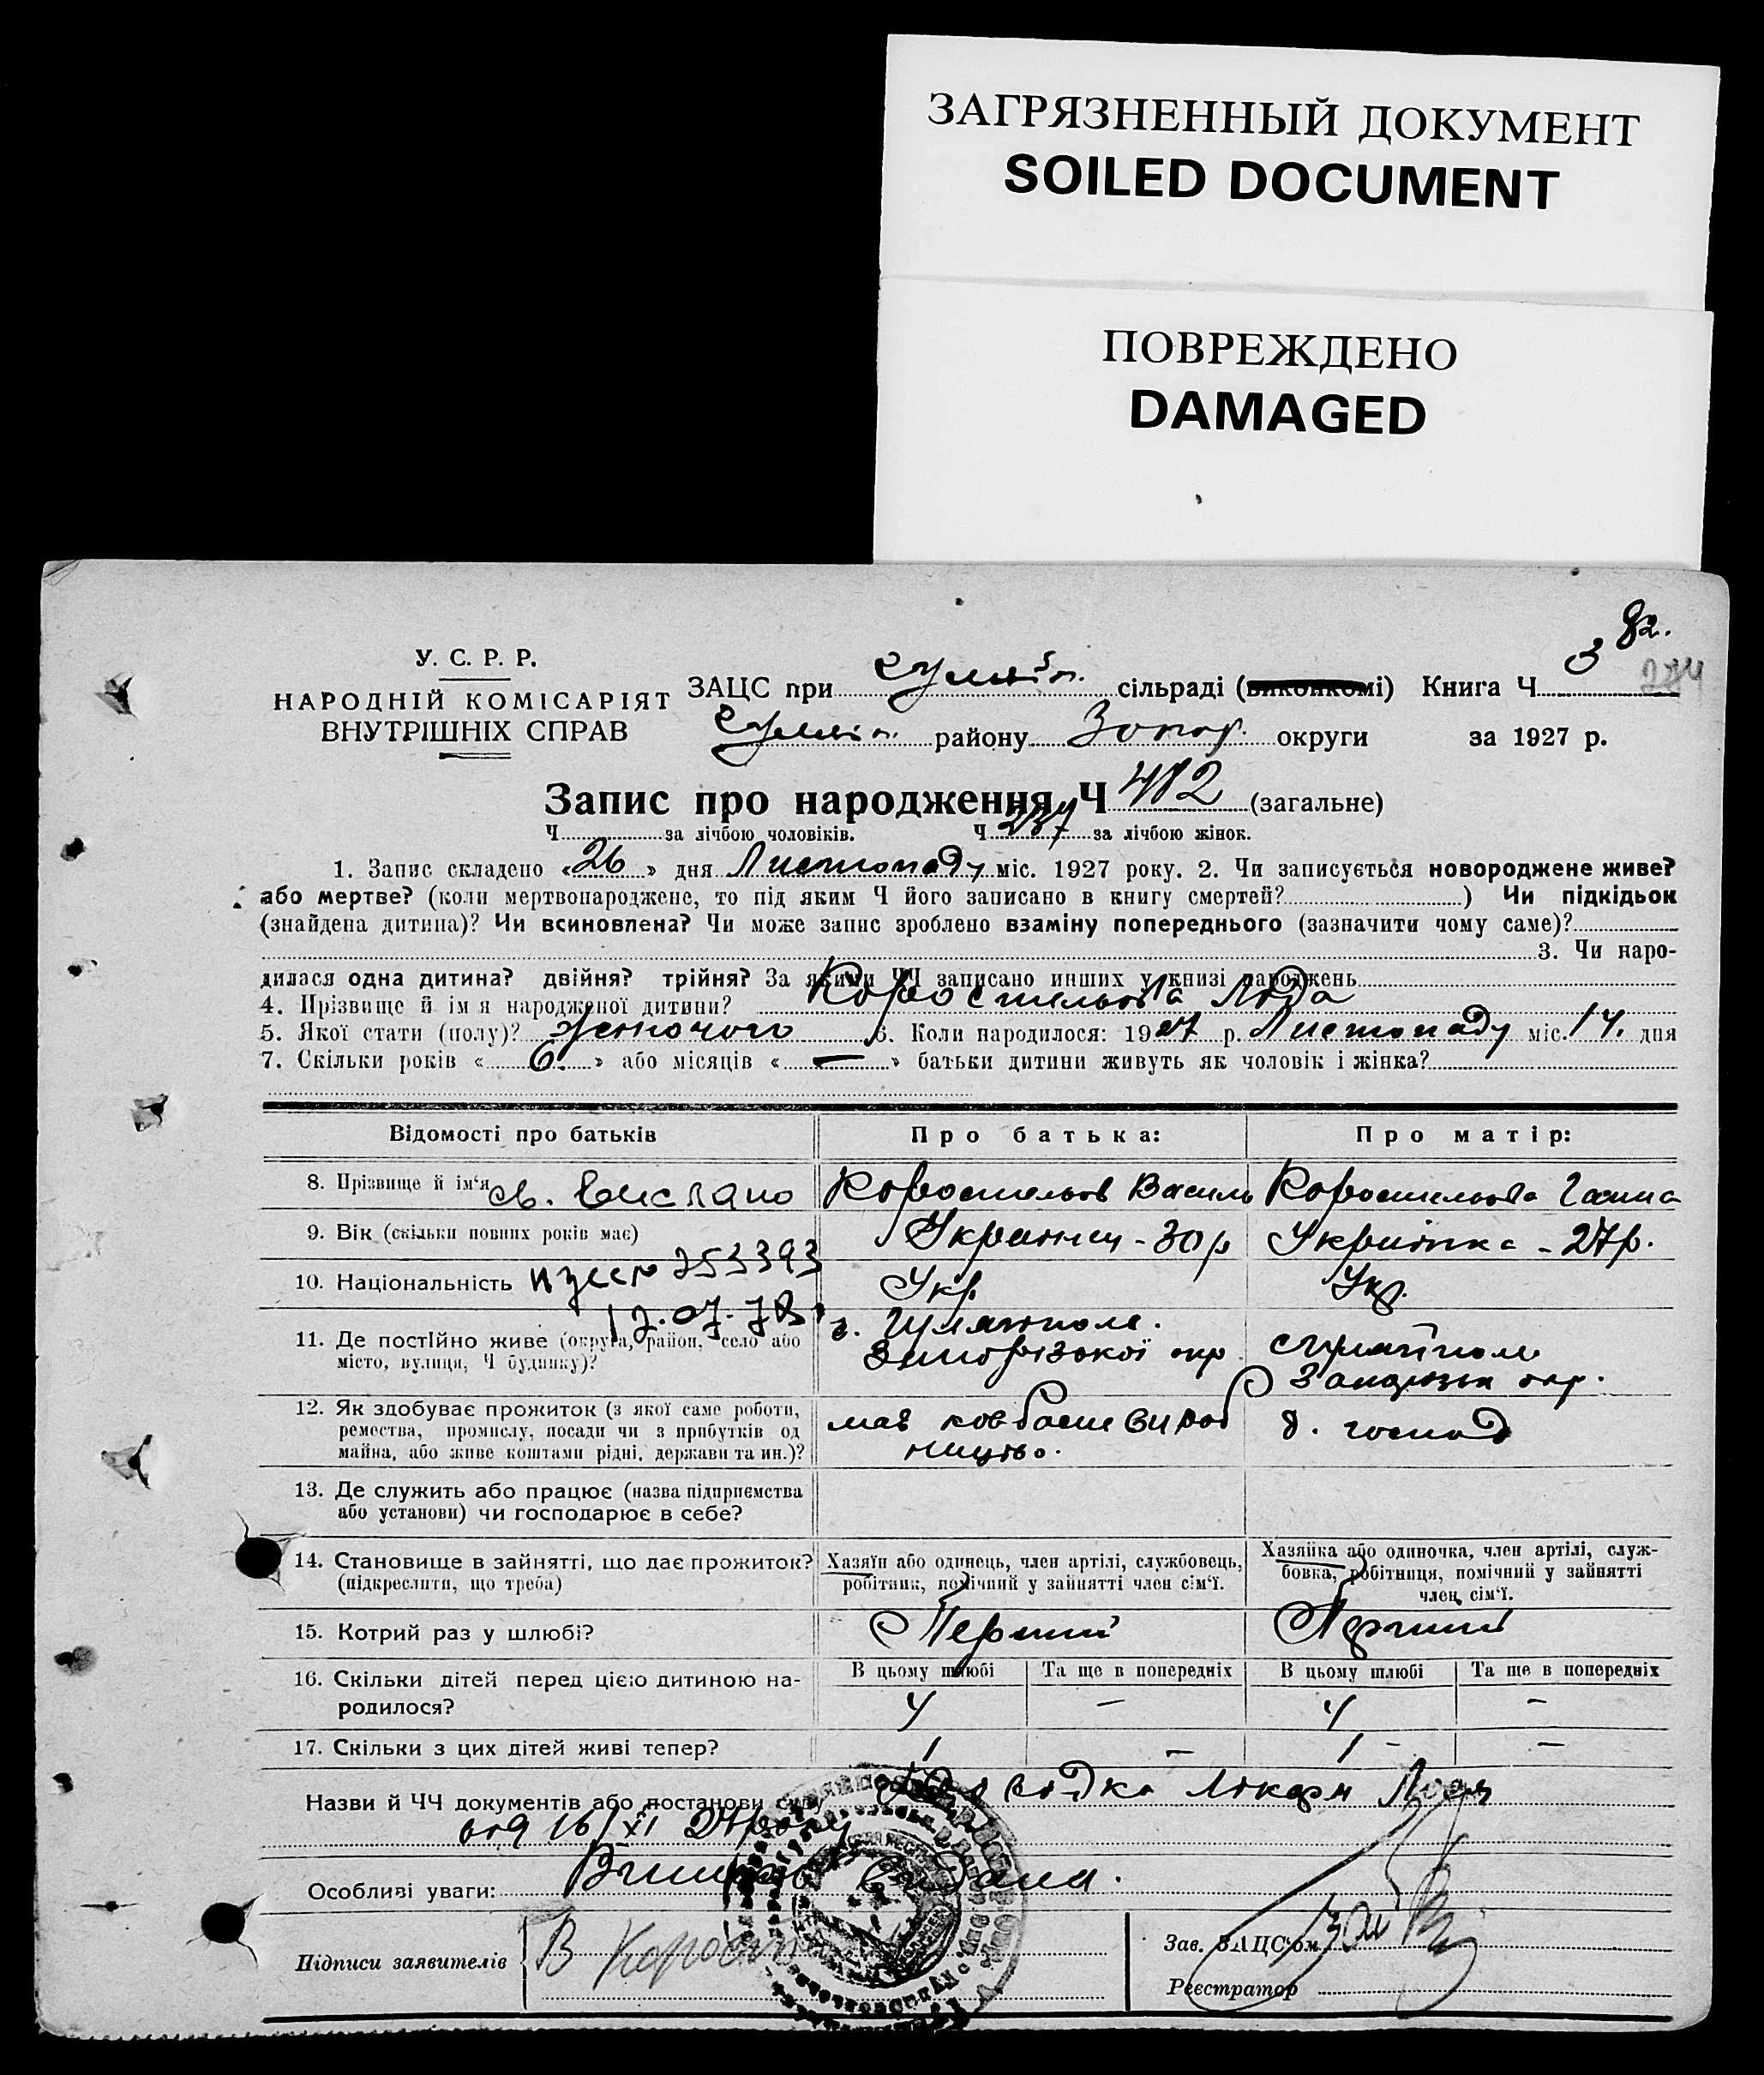 ЗАГРЯЗНЕННЫЙ ДОКУМЕНТ
SOILED DOCUMENT
ПОВРЕЖДЕНО
DAMAGED
82.
284
У. С. Р. Р.
НАРОДНІЙ КОМІСАРІЯТ
ВНУТРІШНІХ СПРАВ
ЗАЦС при Гуляйп. сільраді (виконкомі) Книга Ч 3
Гуляйп. району Запор. округи за 1927 р.
Запис про народження Ч 482 (загальне)
Ч за лічбою чоловіків. Ч 237 за лічбою жінок.
1. Запис складено «26» дня Листопаду міс. 1927 року. 2. Чи записується новороджене живе?
або мертве? (коли мертвонароджене, то під яким Ч його записано в книгу смертей? ) Чи підкідьок
(знайдена дитина)? Чи всиновлена? Чи може запис зроблено взаміну попереднього (зазначити чому саме)?
3. Чи наро-
дилася одна дитина? двійня? трійня? За якими ЧЧ записано инших у книзі народжень
4. Прізвище й ім я народженої дитини? Коростильова Ліда
5. Якої стати (полу)? жіночого 6. Коли народилося: 1927 р. Листопаду міс. 14. дня
7. Скільки років «6.» або місяців «—» батьки дитини живуть як чоловік і жінка?
Відомості про батьків Про батька: Про матір:
8. Прізвище й ім'я Коростильов Василь Коростильова Ганна
9. Вік (скільки повних років має) Українец - 30 р Українка - 27 р.
10. Національність 253393 Укр. Укр.
17.07.78
11. Де постійно живе (округа, район, село або
місто, вулиця, Ч будинку)?
с. Гуляйполе.
Запорізької окр
Гуляйполе
Запорізьк окр.
12. Як здобуває прожиток (з якої саме роботи,
ремества, промислу, посади чи з прибутків од
майна, або живе коштами рідні, держави та ин.)?
має ковбасне вироб
ництво.
д. господ
13. Де служить або працює (назва підприємства
або установи) чи господарює в себе?
14. Становище в зайнятті, що дає прожиток?
(підкреслити, що треба)
Хазяїн або одинець, член артілі, службовець,
робітник, помічний у зайнятті член сім'ї.
Хазяйка або одиночка, член артілі, служ-
бовка, робітниця, помічний у зайнятті
член сім'ї.
15. Котрий раз у шлюбі? Перший Перший
16. Скільки дітей перед цією дитиною на-
родилося?
В цьому шлюбі Та ще в попередніх В цьому шлюбі Та ще в попередніх
4 — 4 —
17. Скільки з цих дітей живі тепер? 1 — 1 —
Назви й ЧЧ документів або постанови суду Довідка Лікаря
від 16/XI 27 року
Особливі уваги: Виписка видана.
Підписи заявителів В Корости
Зав. ЗАЦС'ом
Реєстратор